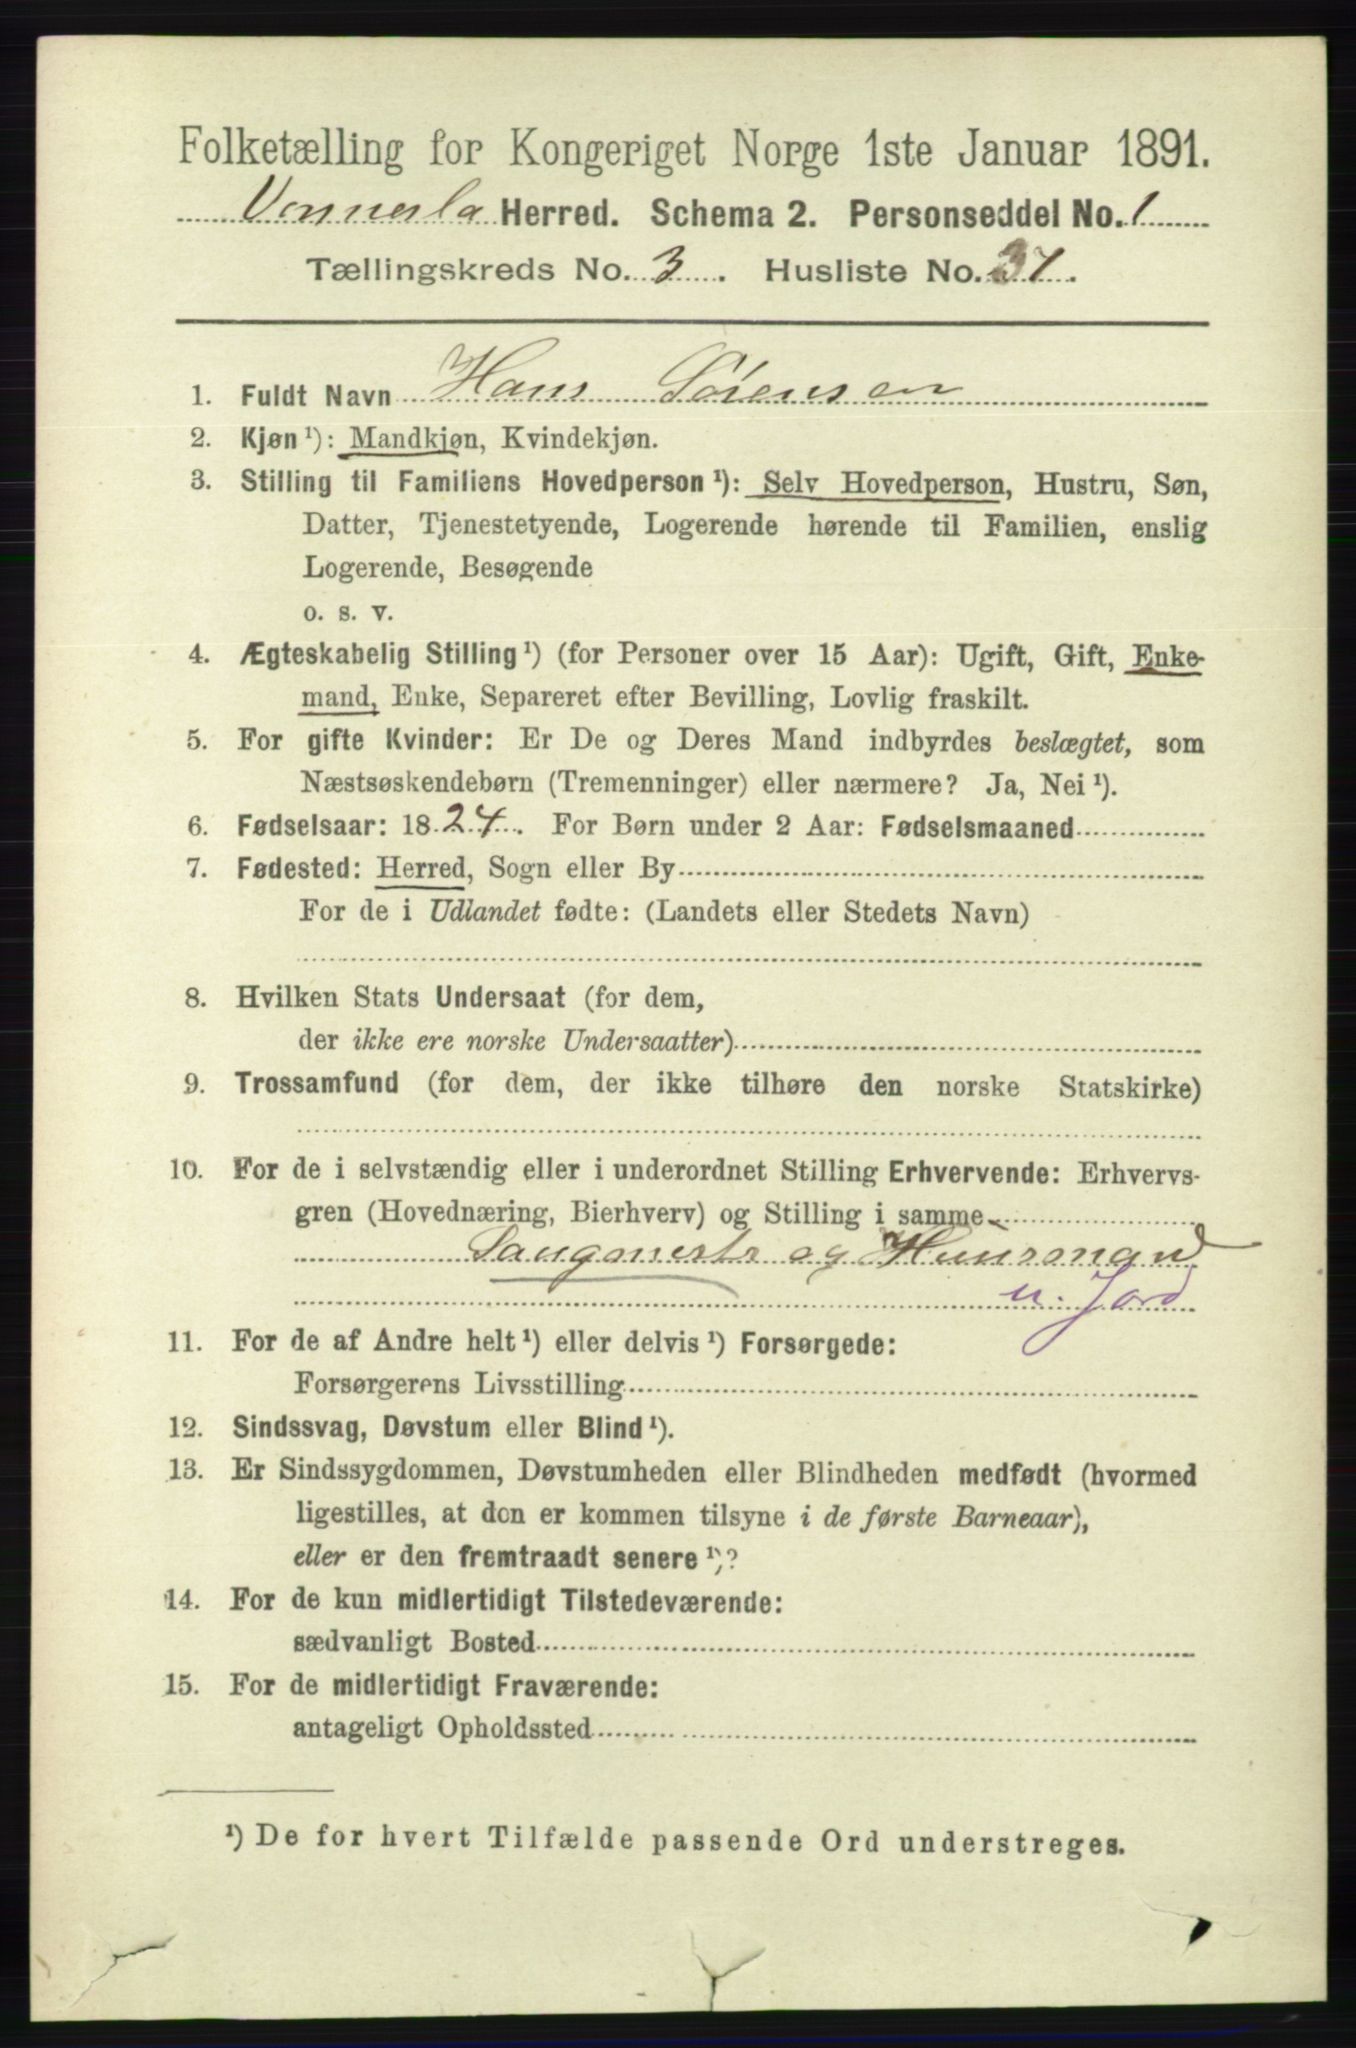 Folketælling for Kongeriget Norge 1ste Januar 1891.
Vennesla Herred. Schema 2. Personseddel No. 1
Tællingskreds No. 3. Husliste No. 37.
1. Fuldt Navn Hans Sörensen
2. Kjøn ¹): Mandkjøn, Kvindekjøn.
3. Stilling til Familiens Hovedperson ¹): Selv Hovedperson, Hustru, Søn,
Datter, Tjenestetyende, Logerende hørende til Familien, enslig
Logerende, Besøgende
o. s. v.
4. Ægteskabelig Stilling ¹) (for Personer over 15 Aar): Ugift, Gift, Enke-
mand, Enke, Separeret efter Bevilling, Lovlig fraskilt.
5. For gifte Kvinder: Er De og Deres Mand indbyrdes beslægtet, som
Næstsøskendebørn (Tremenninger) eller nærmere? Ja, Nei ¹).
6. Fødselsaar: 1824. For Børn under 2 Aar: Fødselsmaaned
7. Fødested: Herred, Sogn eller By
For de i Udlandet fødte: (Landets eller Stedets Navn)
8. Hvilken Stats Undersaat (for dem,
der ikke ere norske Undersaatter)
9. Trossamfund (for dem, der ikke tilhøre den norske Statskirke)
10. For de i selvstændig eller i underordnet Stilling Erhvervende: Erhvervs-
gren (Hovednæring, Bierhverv) og Stilling i samme
Saugmestr og Huusmand
u. Jord
11. For de af Andre helt ¹) eller delvis ¹) Forsørgede:
Forsørgerens Livsstilling
12. Sindssvag, Døvstum eller Blind ¹).
13. Er Sindssygdommen, Døvstumheden eller Blindheden medfødt (hvormed
ligestilles, at den er kommen tilsyne i de første Barneaar),
eller er den fremtraadt senere ¹)?
14. For de kun midlertidigt Tilstedeværende:
sædvanligt Bosted
15. For de midlertidigt Fraværende:
antageligt Opholdssted
¹) De for hvert Tilfælde passende Ord understreges.